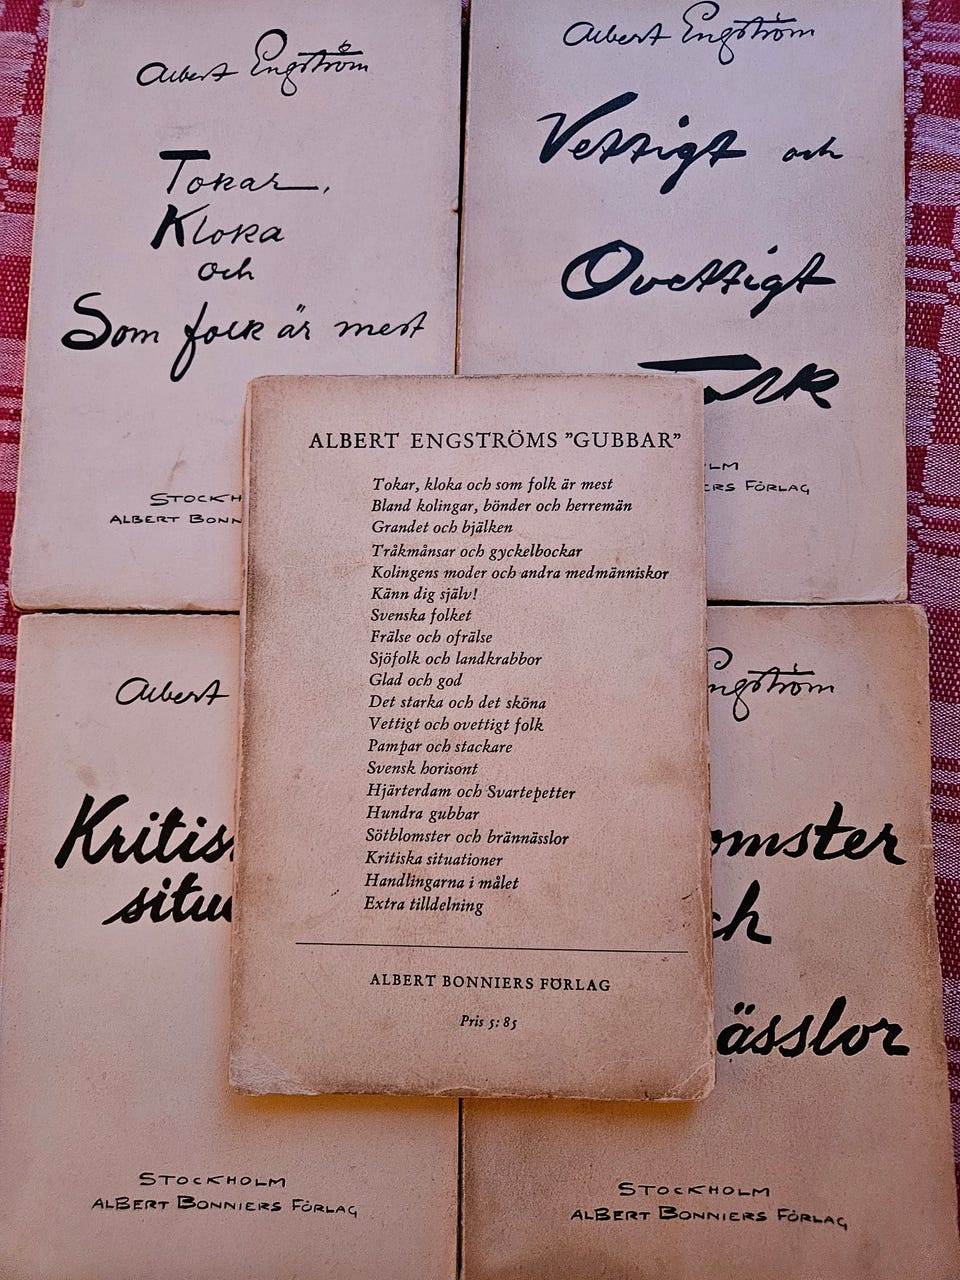 Albert Engström
Tokar,
Kloka
och
Som folk är mest
STOCKH
ALBERT BONN
Albert Engström
Vettigt och
Ovettigt
Folk
LM
ERS FÖRLAG
ALBERT ENGSTRÖMS ”GUBBAR”
Tokar, kloka och som folk är mest
Bland kolingar, bönder och herremän
Grandet och bjälken
Tråkmånsar och gyckelbockar
Kolingens moder och andra medmänniskor
Känn dig själv!
Svenska folket
Frälse och ofrälse
Sjöfolk och landkrabbor
Glad och god
Det starka och det sköna
Vettigt och ovettigt folk
Pampar och stackare
Svensk horisont
Hjärterdam och Svartepetter
Hundra gubbar
Sötblomster och brännässlor
Kritiska situationer
Handlingarna i målet
Extra tilldelning
ALBERT BONNIERS FÖRLAG
Pris 5:85
Albert
Kritis
situa
STOCKHOLM
ALBERT BONNIERS FÖRLAG
ngström
omster
ch
ässlor
STOCKHOLM
ALBERT BONNIERS FÖRLAG